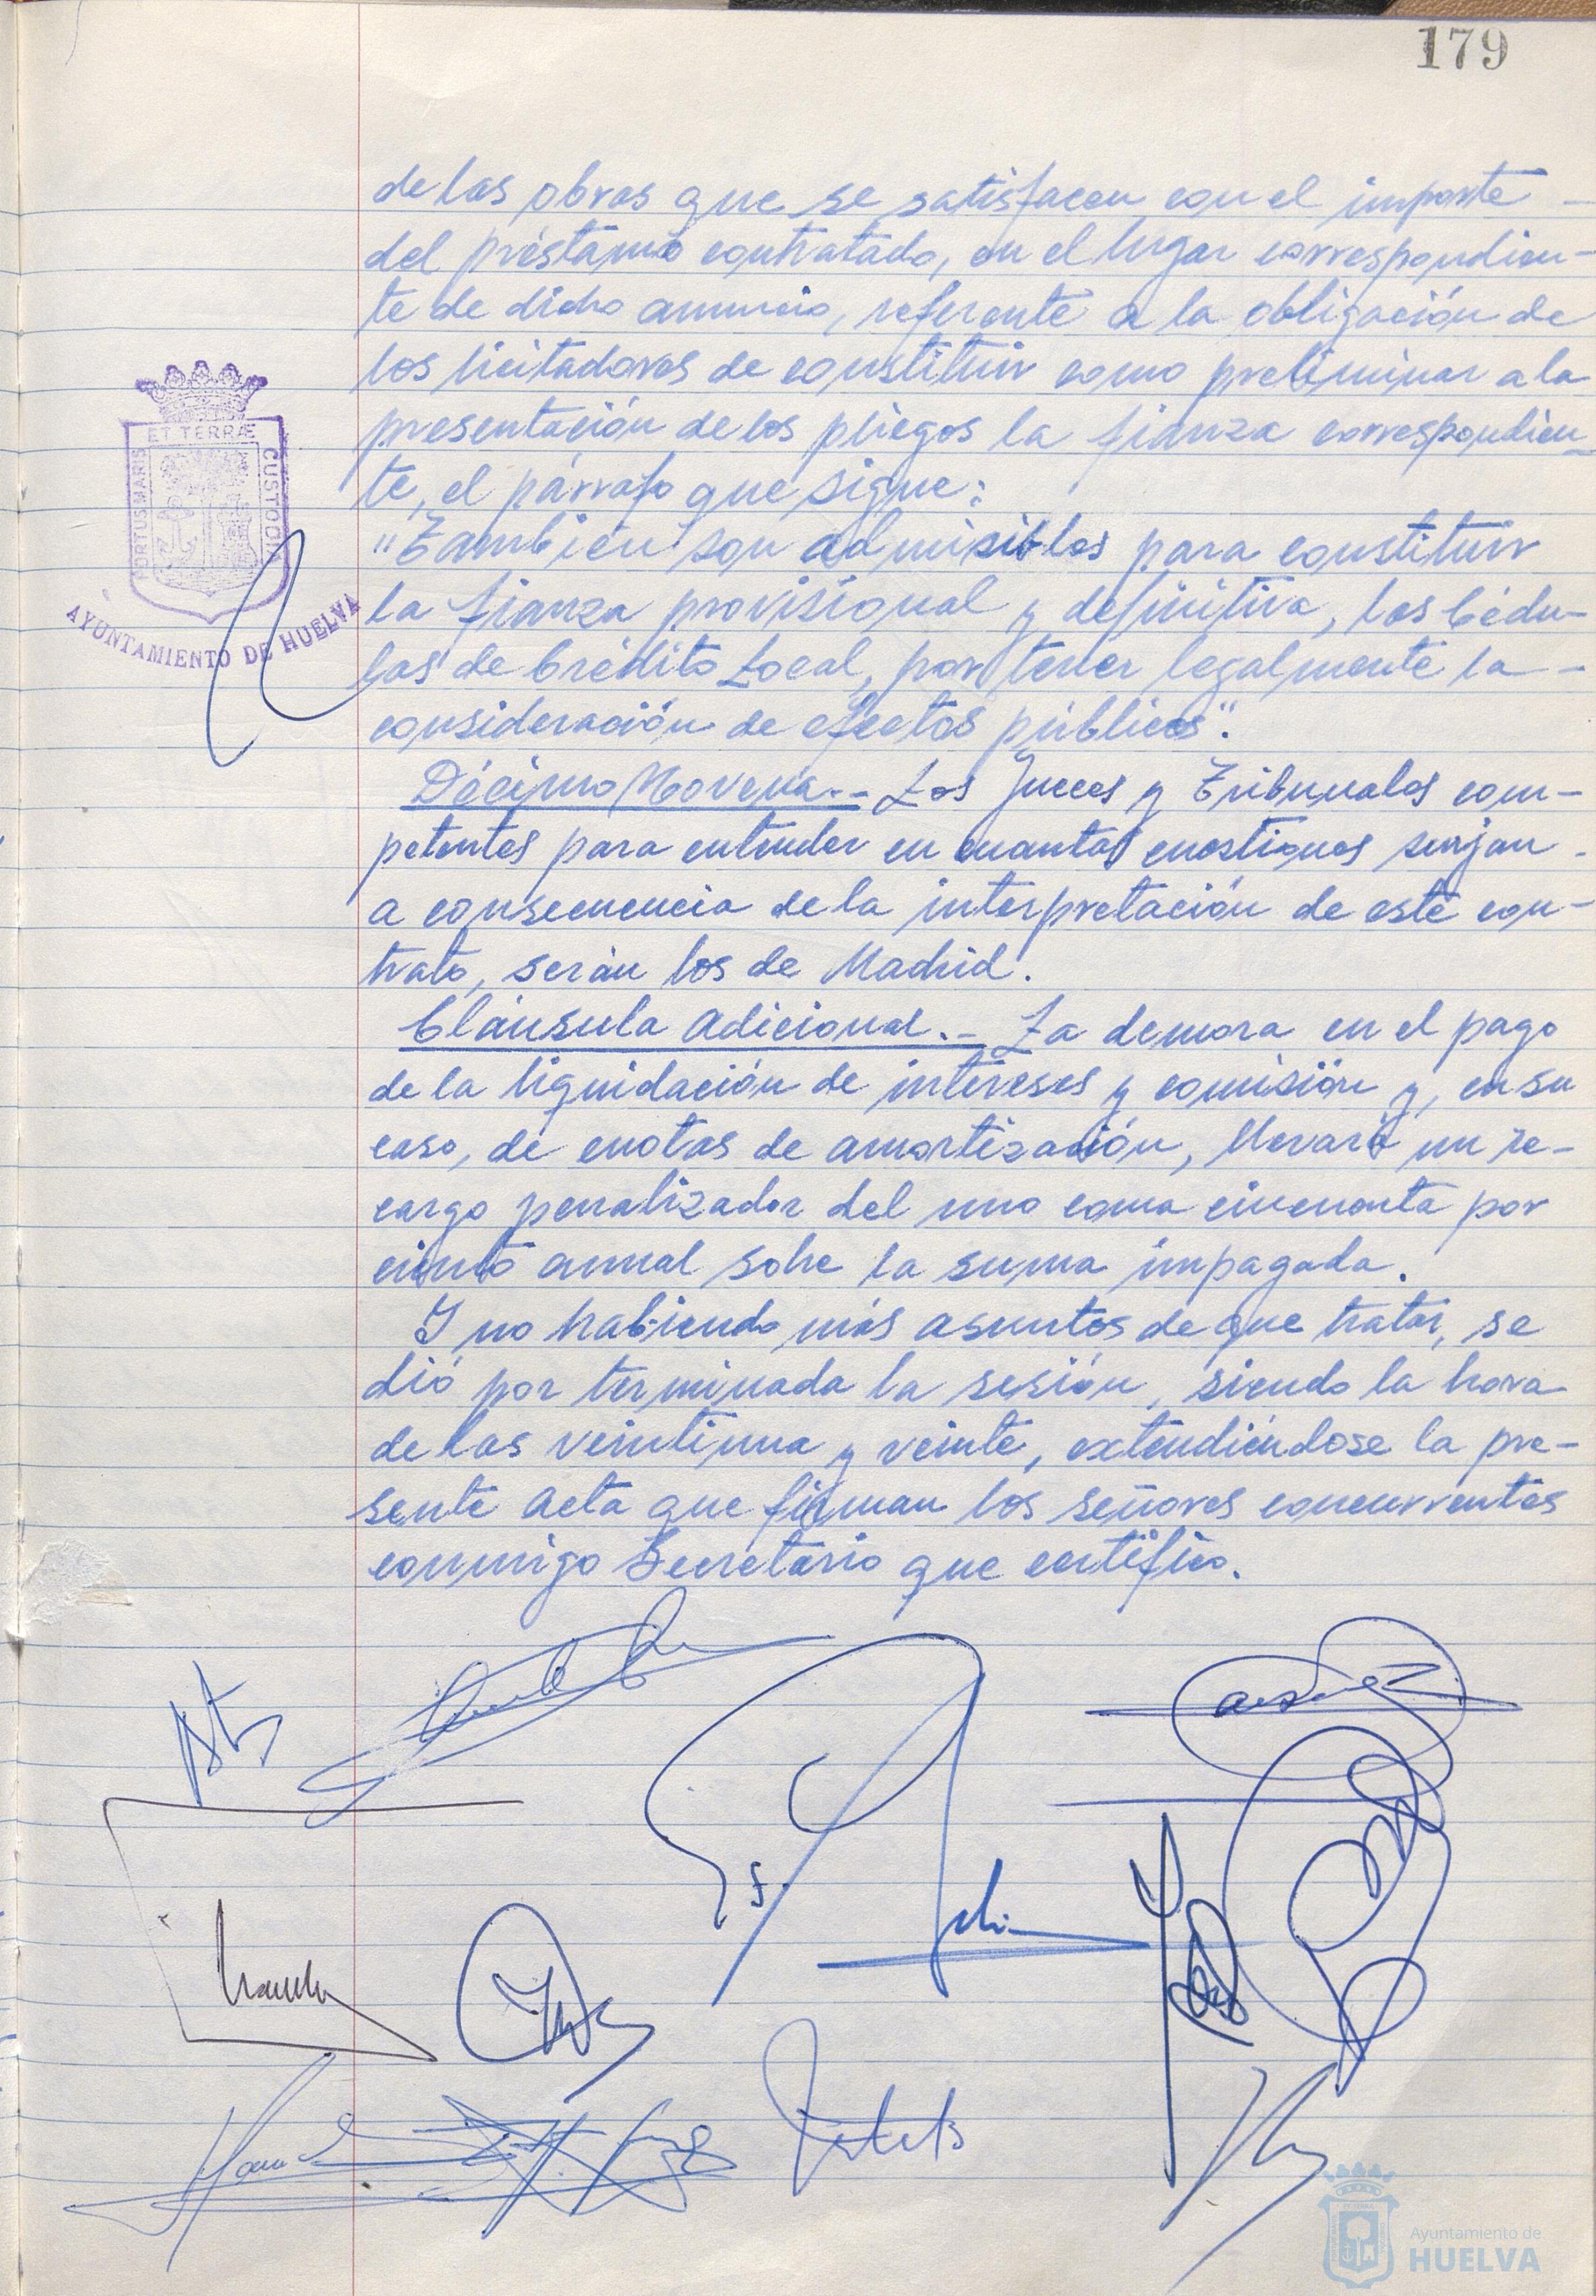 179
de las obras que se satisfacen con el importe -
del préstamo contratado, en el lugar correspondien-
te de dicho anuncio, referente a la obligación de
los licitadores de constituir como preliminar a la
presentación de los pliegos la fianza correspondien-
te, el párrafo que sigue:
"También son admisibles para constituir
la fianza provisional y definitiva, las Cédu-
las de Crédito Local, por tener legalmente la -
consideración de efectos públicos".
Décimo Novena.- Los Jueces y Tribunales com-
petentes para entender en cuantas cuestiones surjan -
a consecuencia de la interpretación de este con-
trato, serán los de Madrid.
Cláusula Adicional.- La demora en el pago
de la liquidación de intereses y comisión y, en su
caso, de cuotas de amortización, llevará un re-
cargo penalizador del uno coma cincuenta por
ciento anual sobre la suma impagada.
Y no habiendo más asuntos de que tratar, se
dió por terminada la sesión, siendo la hora
de las veintiuna y veinte, extendiéndose la pre-
sente acta que firman los señores concurrentes
conmigo Secretario que certifico.
PORTUS MARIS ET TERRÆ CUSTODIA
AYUNTAMIENTO DE HUELVA
Ayuntamiento de
HUELVA